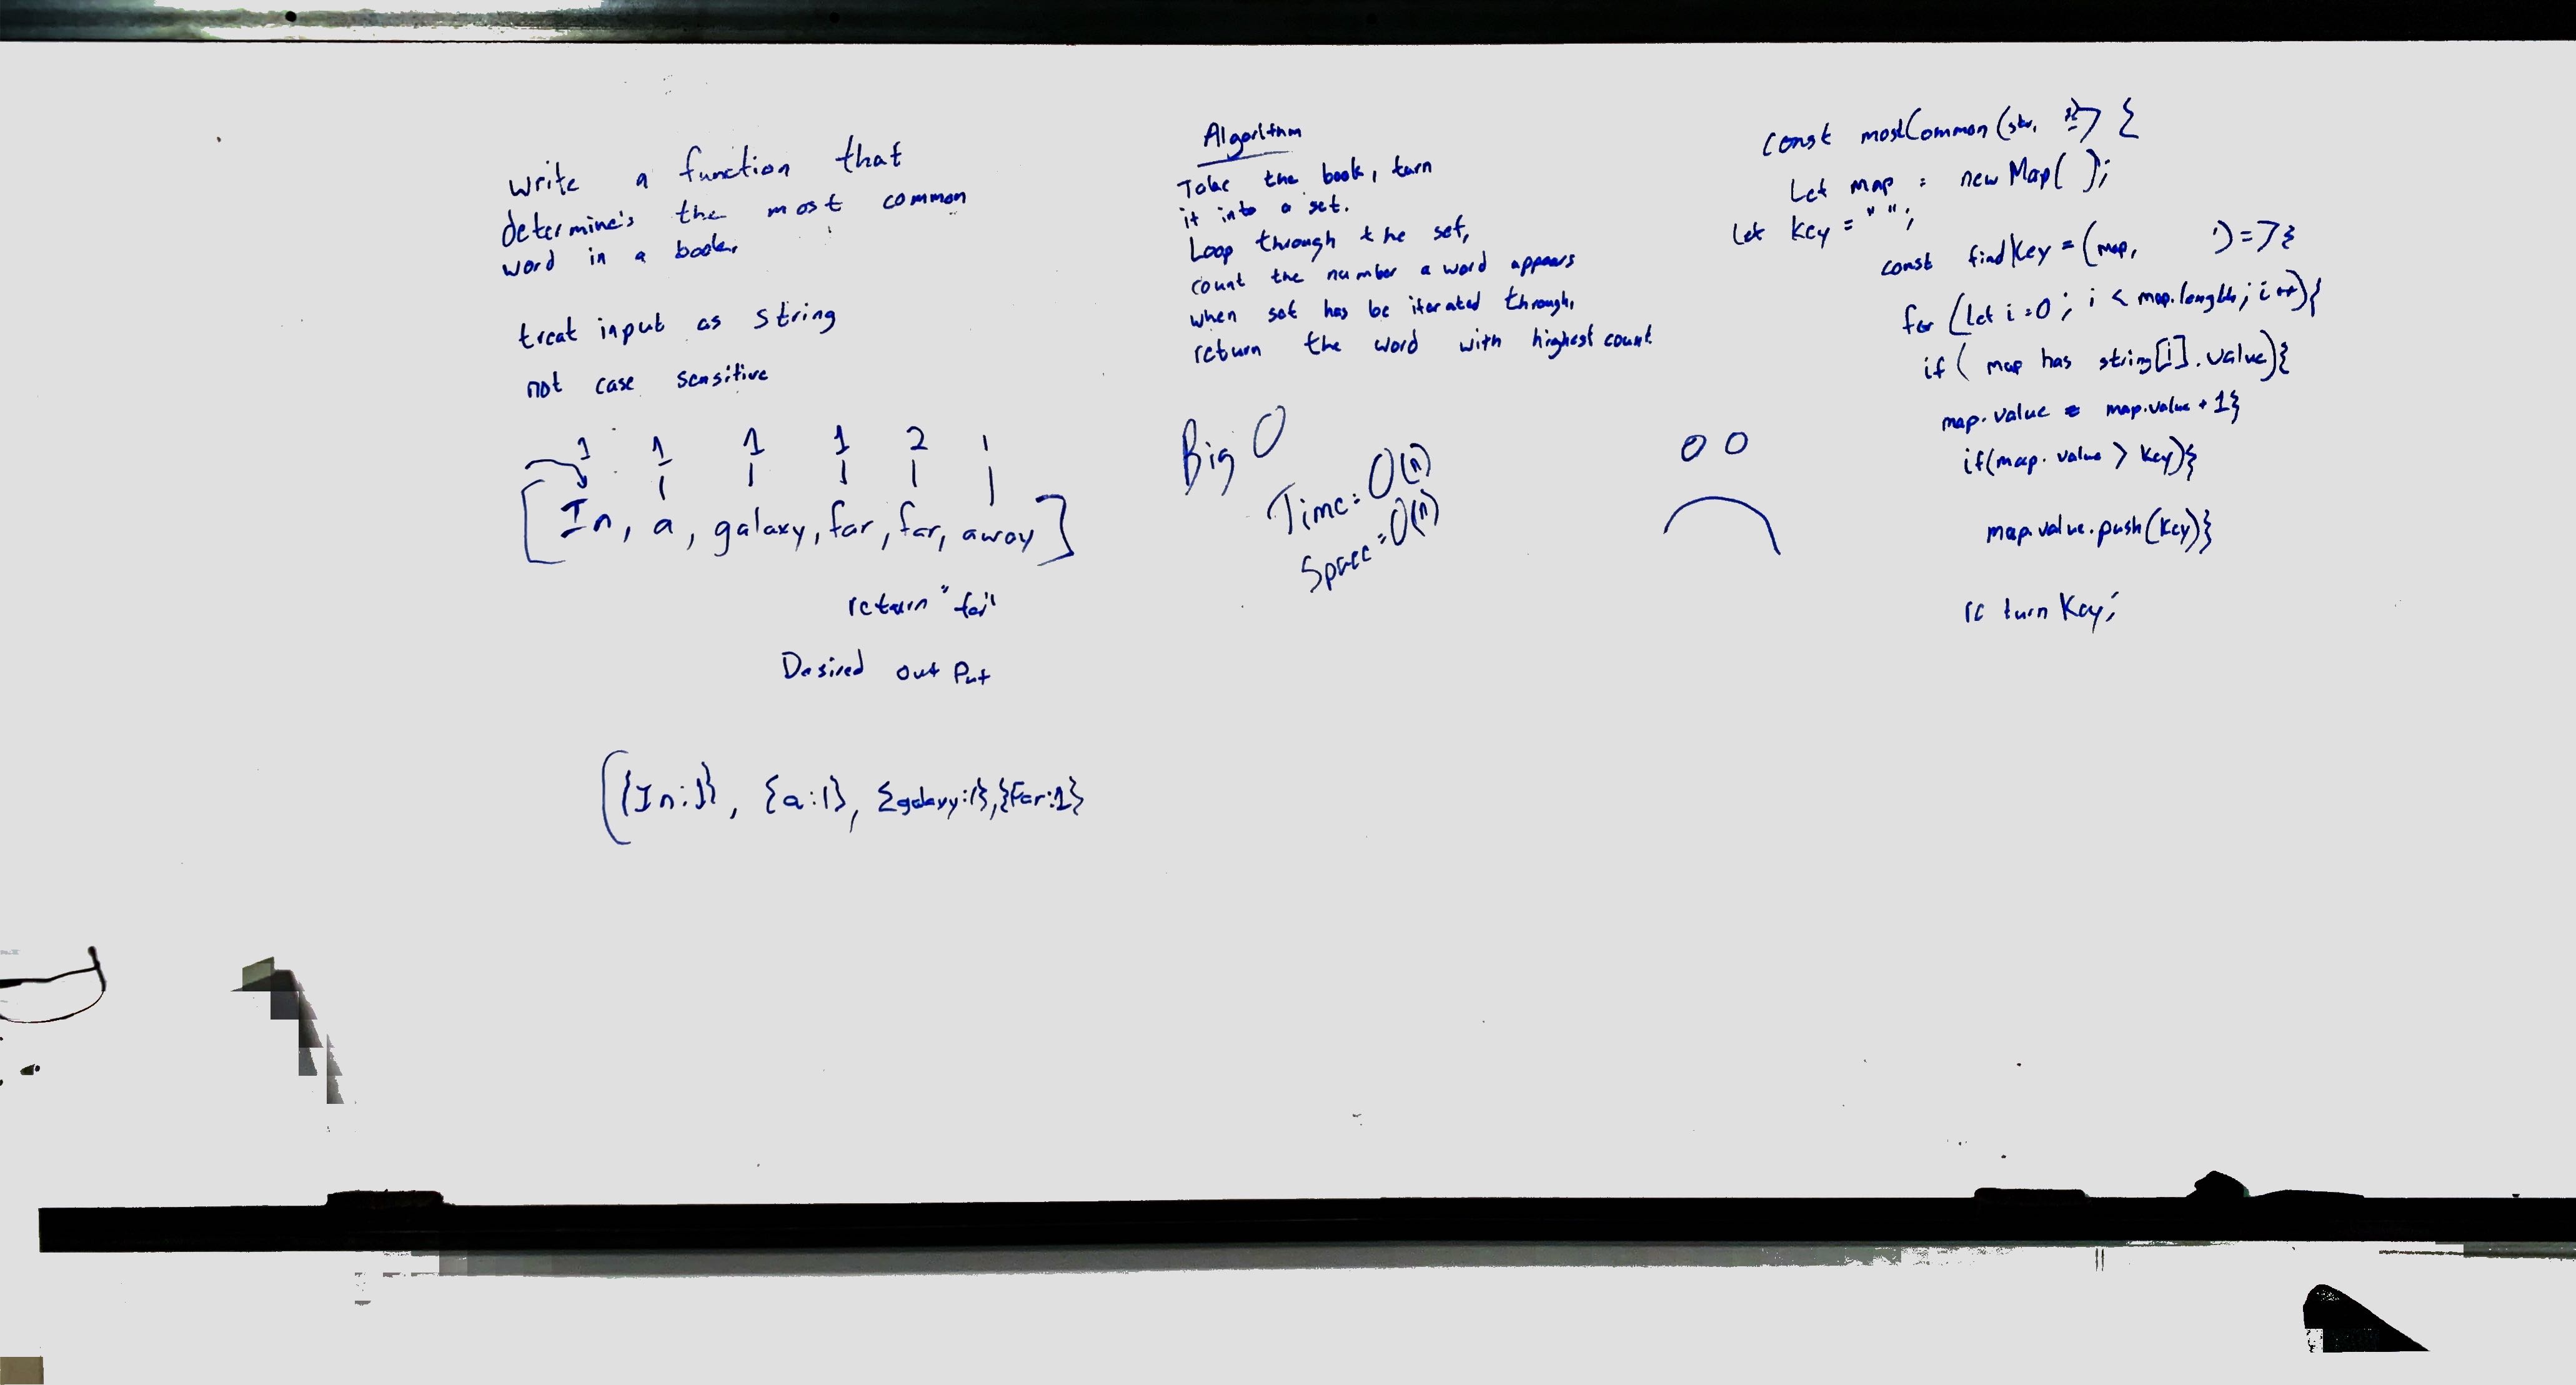 write a function that
determine's the most common
word in a book.
treat input as string
not case sensitive
1 1 1 1 2 1
[In, a, galaxy, far, far, away]
return "far"
Desired out Put
[{In:1}, {a:1}, {galaxy:1}, {Far:1}
Algorithm
Take the book, turn
it into a set.
Loop through the set,
count the number a word appears
when set has be iterated through,
return the word with highest count
Big O
Time: O(n)
Space: O(n)
const mostCommon (str, {
Let map = new Map( );
let key = " ";
const findKey = (map, ) => {
for (let i = 0; i < map.length; i++){
if ( map has string[i].value){
map.value = map.value + 1}
if(map.value > key){
map.value.push(key)}
return Key;